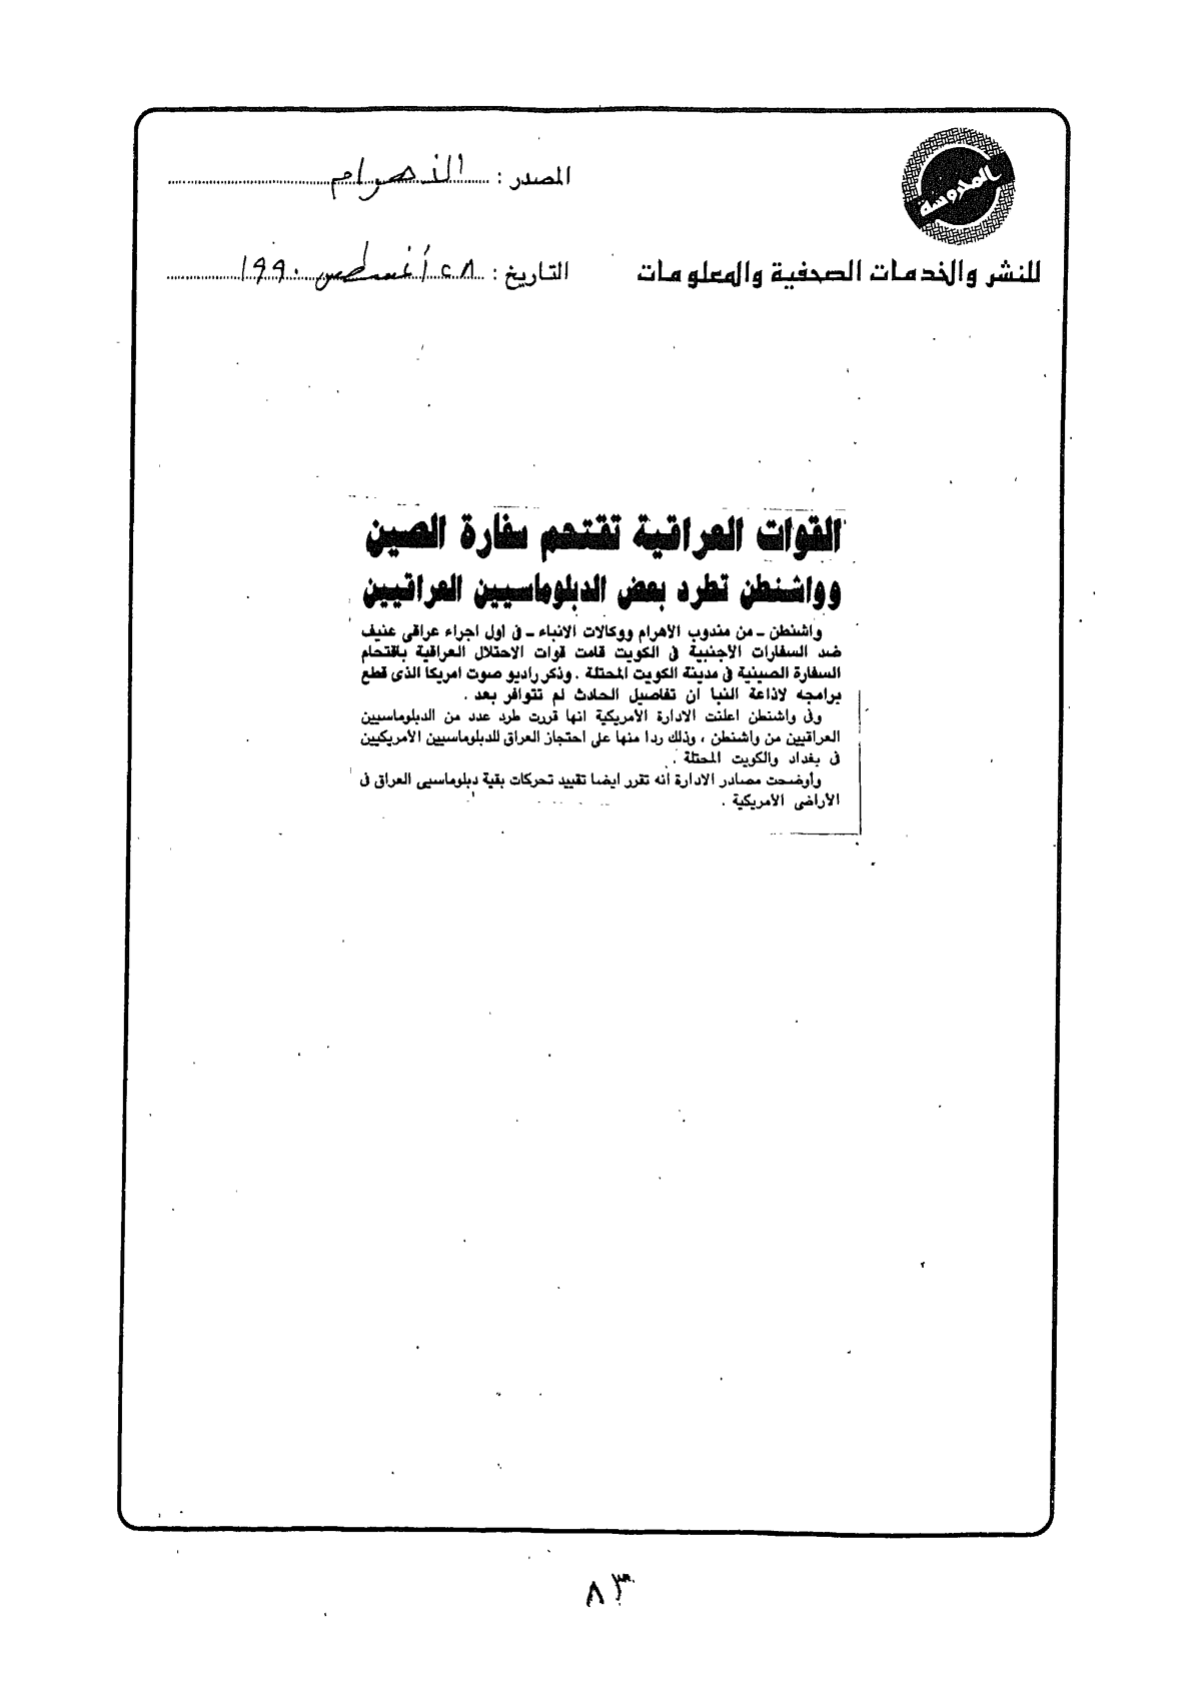 المدروسة
المصدر : الأهرام
للنشر والخدمات الصحفية والمعلومات
التاريخ : ٢٨ أغسطس ١٩٩٠
القوات العراقية تقتحم سفارة الصين
وواشنطن تطرد بعض الدبلوماسيين العراقيين
واشنطن - من مندوب الأهرام ووكالات الانباء - فى اول اجراء عراقى عنيف
ضد السفارات الأجنبية فى الكويت قامت قوات الاحتلال العراقية باقتحام
السفارة الصينية فى مدينة الكويت المحتلة . وذكر راديو صوت امريكا الذى قطع
برامجه لاذاعة النبا ان تفاصيل الحادث لم تتوافر بعد .
وفى واشنطن اعلنت الادارة الأمريكية انها قررت طرد عدد من الدبلوماسيين
العراقيين من واشنطن ، وذلك ردا منها على احتجاز العراق للدبلوماسيين الأمريكيين
فى بغداد والكويت المحتلة .
وأوضحت مصادر الادارة انه تقرر ايضا تقييد تحركات بقية دبلوماسيى العراق فى
الأراضى الأمريكية .
٨٣